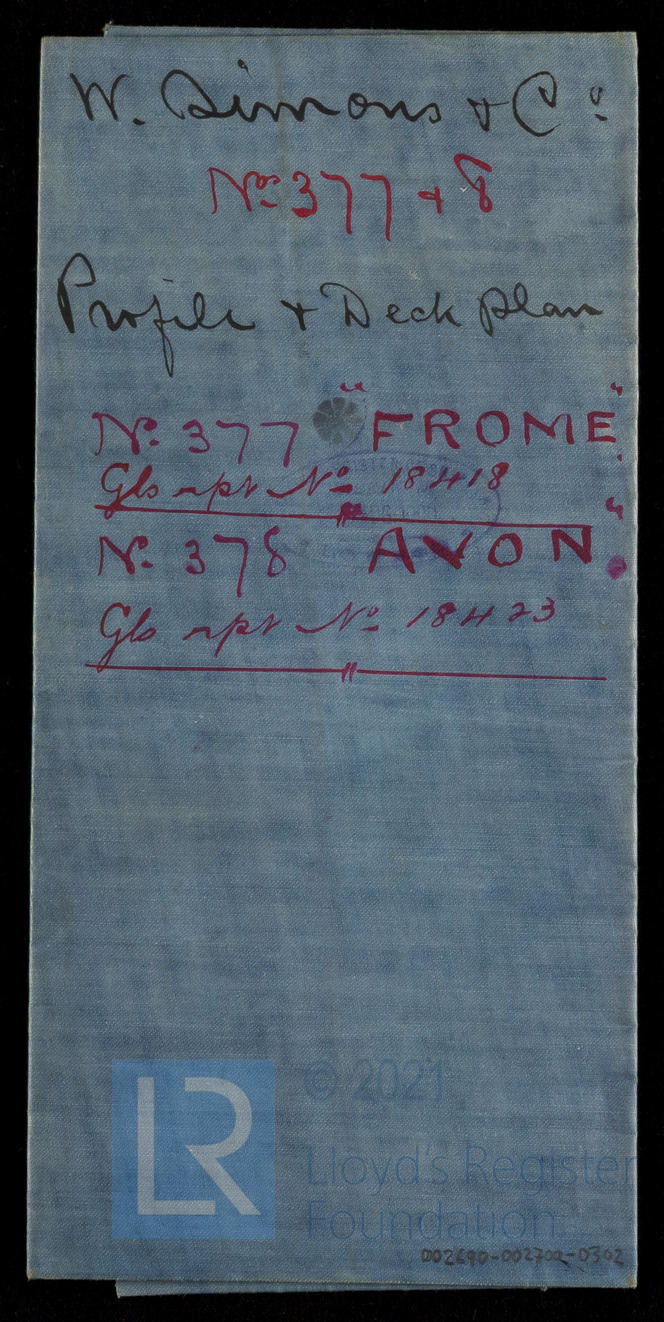 W. Simons & Co
Nos 377 & 8
Profile & Deck plan
No. 377 "FROME"
Gls rpt No 18418
No. 378 "AVON"
Gls rpt No 18423
LR
© 2021
Lloyd's Register
Foundation
002690-002702-0302